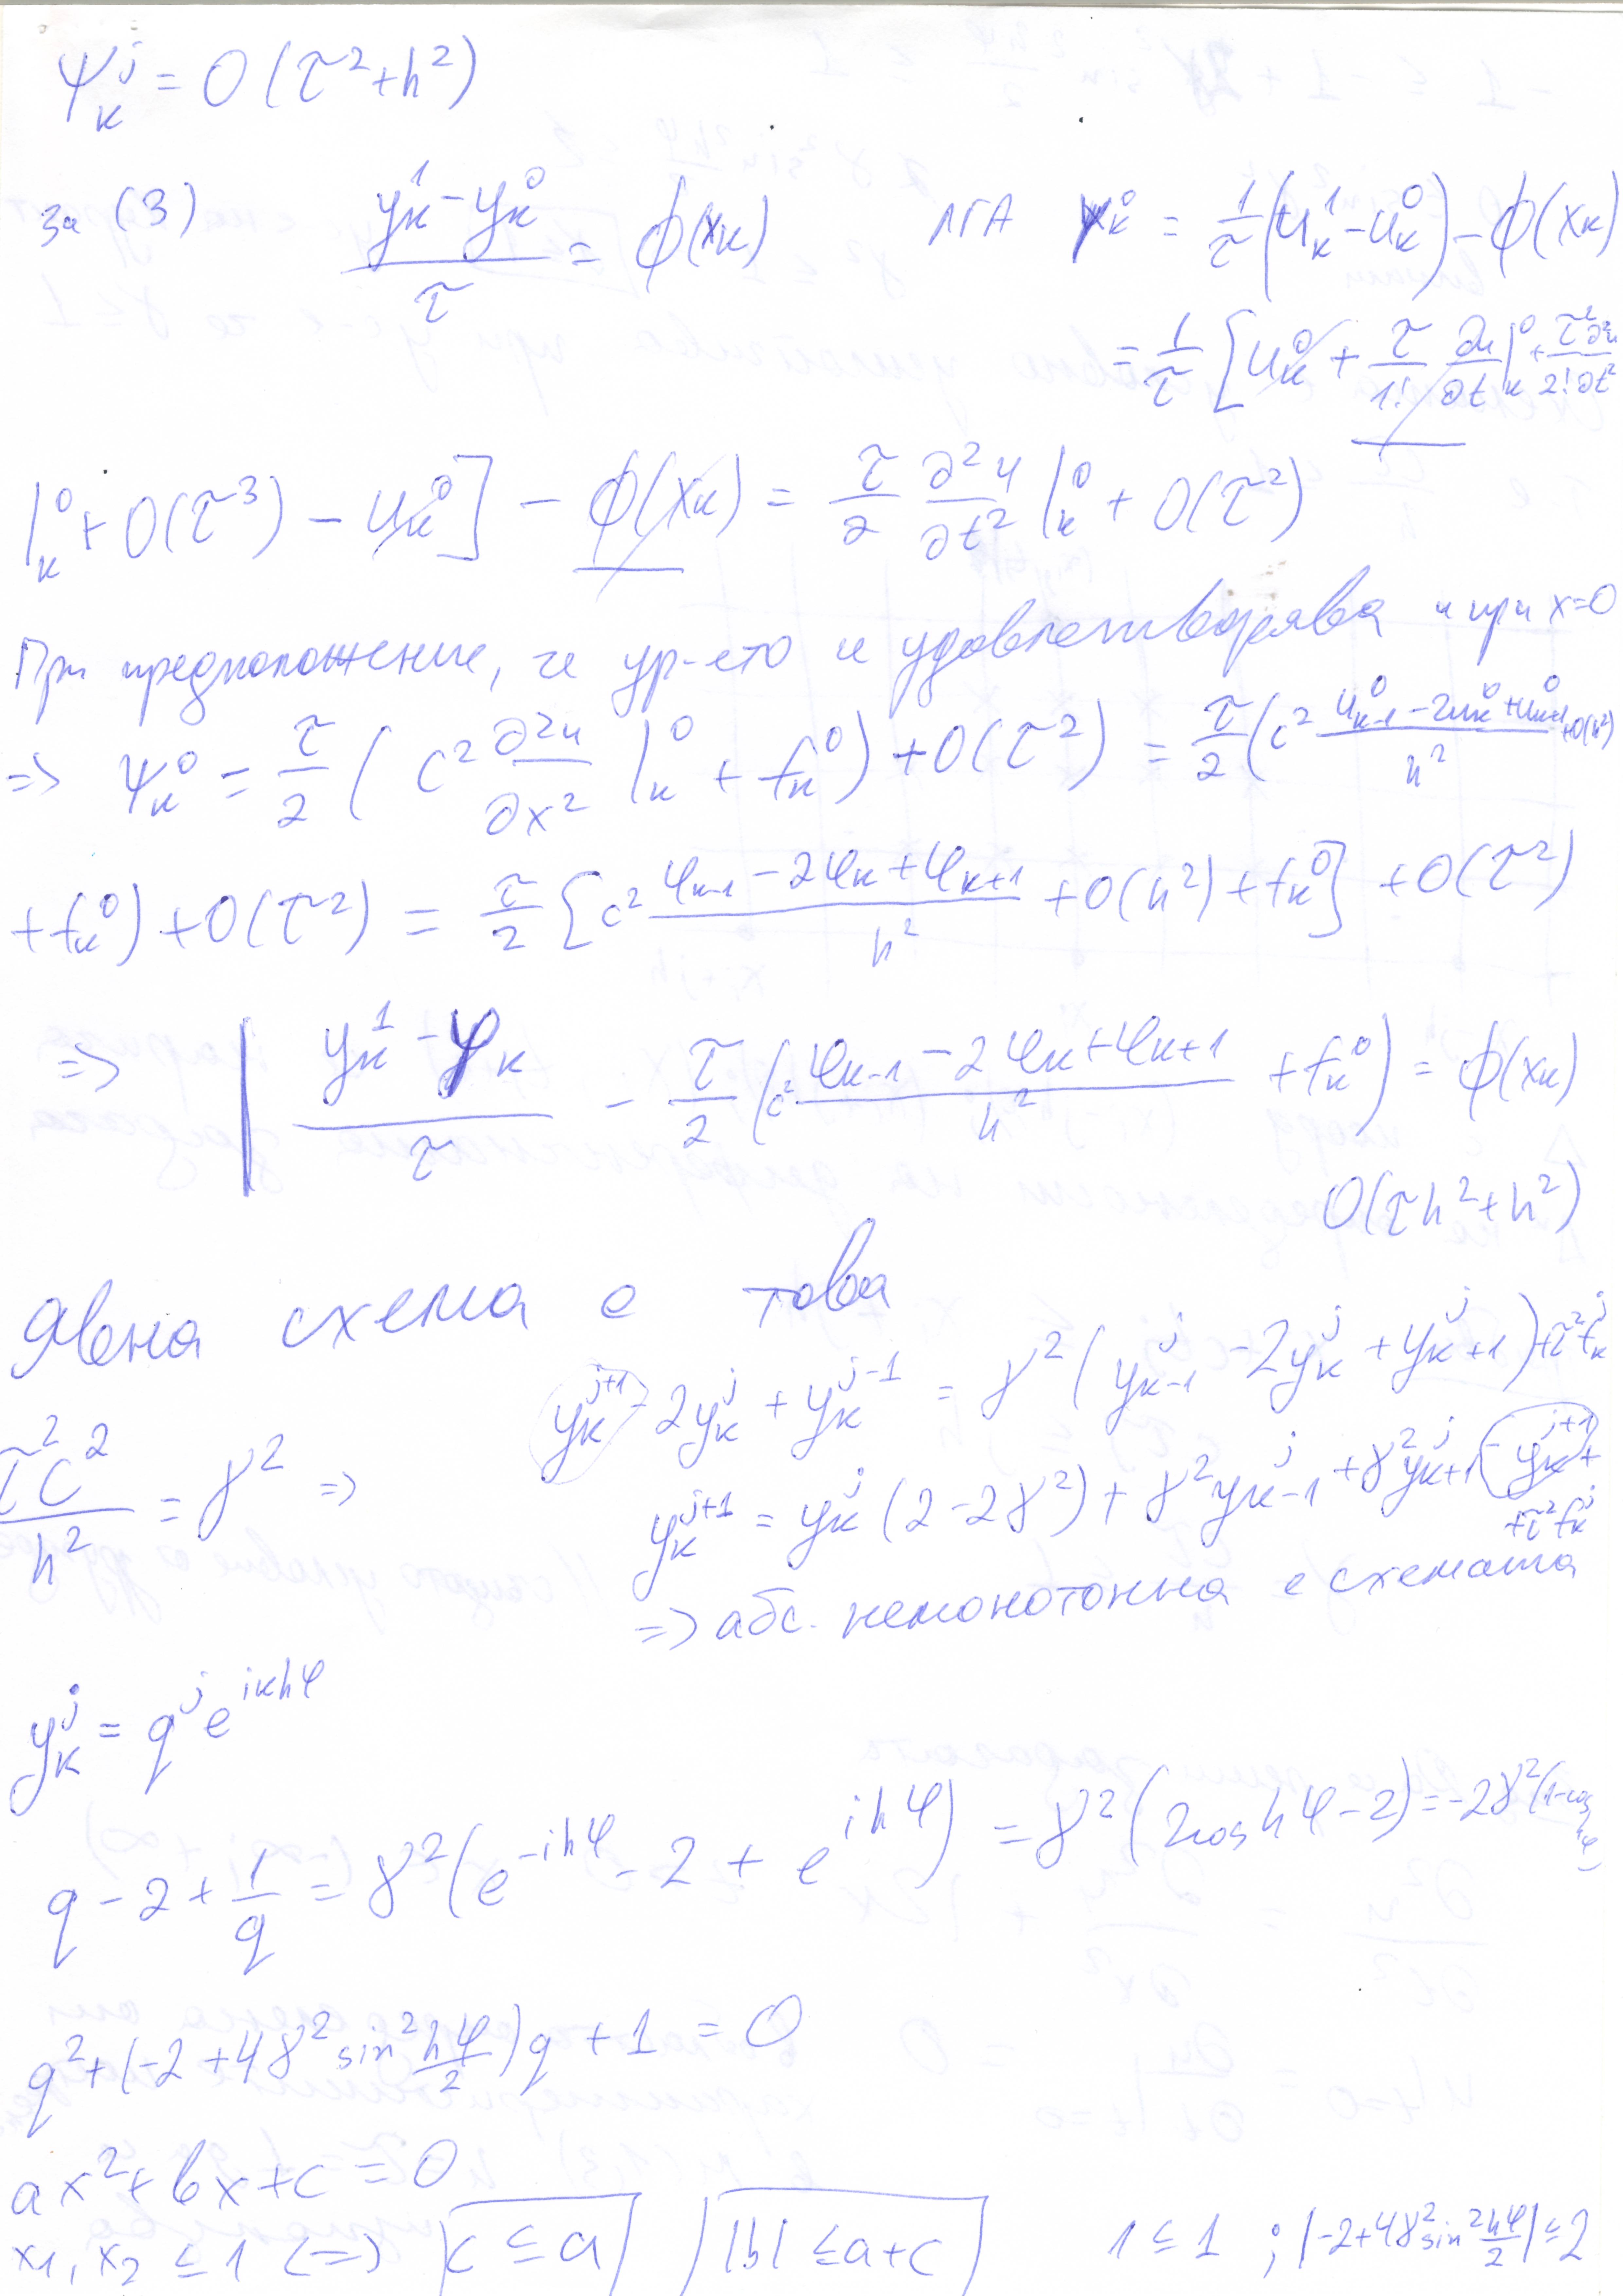 ψ_k^j = O(τ² + h²)
за (3) (y_k^1 - y_k^0)/τ = ϕ(x_k) ЛГА ψ_k^0 = 1/τ (u_k^1 - u_k^0) - ϕ(x_k)
= 1/τ [u_k^0 + τ/1! ∂u/∂t |_k^0 + τ²/2! ∂²u/∂t²
|_k^0 + O(τ³) - u_k^0] - ϕ(x_k) = τ/2 ∂²u/∂t² |_k^0 + O(τ²)
При предположение, че ур-ето и удовлетворява и при x=0
=> ψ_k^0 = τ/2 (c² ∂²u/∂x² |_k^0 + f_k^0) + O(τ²) = τ/2 (c² (u_{k-1}^0 - 2u_k^0 + u_{k+1}^0)/h² + O(h²)
+ f_k^0) + O(τ²) = τ/2 [c² (φ_{k-1} - 2φ_k + φ_{k+1})/h² + O(h²) + f_k^0] + O(τ²)
=> | (y_k^1 - φ_k)/τ - τ/2 (c² (φ_{k-1} - 2φ_k + φ_{k+1})/h² + f_k^0) = ϕ(x_k)
O(τh² + h²)
Явна схема е това
y_k^{j+1} - 2y_k^j + y_k^{j-1} = γ² (y_{k-1}^j - 2y_k^j + y_{k+1}^j) + τ² f_k^j
τ²c²/h² = γ² => y_k^{j+1} = y_k^j (2 - 2γ²) + γ² y_{k-1}^j + γ² y_{k+1}^j - y_k^{j+1} +
+ τ² f_k^j
=> абс. немонотонна е схемата
y_k^j = q^j e^{ikhφ}
q - 2 + 1/q = γ² (e^{-ihφ} - 2 + e^{ihφ}) = γ² (2cos hφ - 2) = -2γ² (1-cos hφ)
q² + (-2 + 4γ² sin² hφ/2) q + 1 = 0
ax² + bx + c = 0
x1, x2 ≤ 1 <=> |c ≤ a| | |b| ≤ a+c | 1 ≤ 1 ; |-2+4γ² sin² hφ/2| ≤ 2